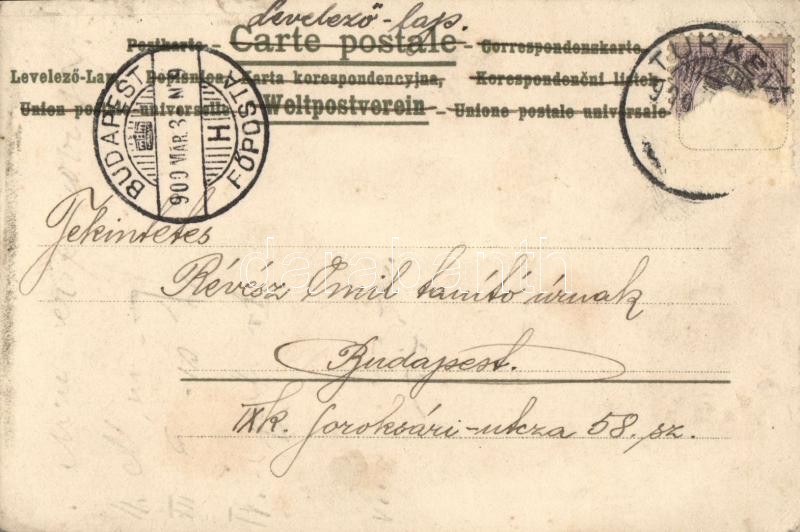 Levelező-lap.
Postkarte – Carte postale – Correspondenzkarte
Levelező-Lap – Dopisnica – Karta korespondencyjna, Korespondenční lístek
Union postale universelle Weltpostverein – Unione postale universale
BUDAPEST FŐPOSTA
900 MÁR. 3
H
TURKEVE
Tekintetes
Révész Emil tanító úrnak
Budapest.
IXk. Soroksári-utcza 58. sz.
darabanth